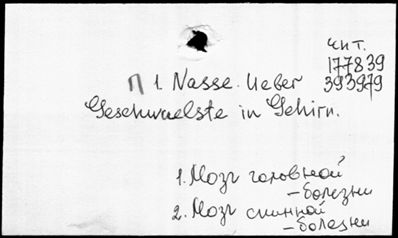 чит.
177839
П 1. Nasse. Ueber 393979
Geschwaelste in Gehirn.
1. Мозг головной
– болезни
2. Мозг спинной
– болезни